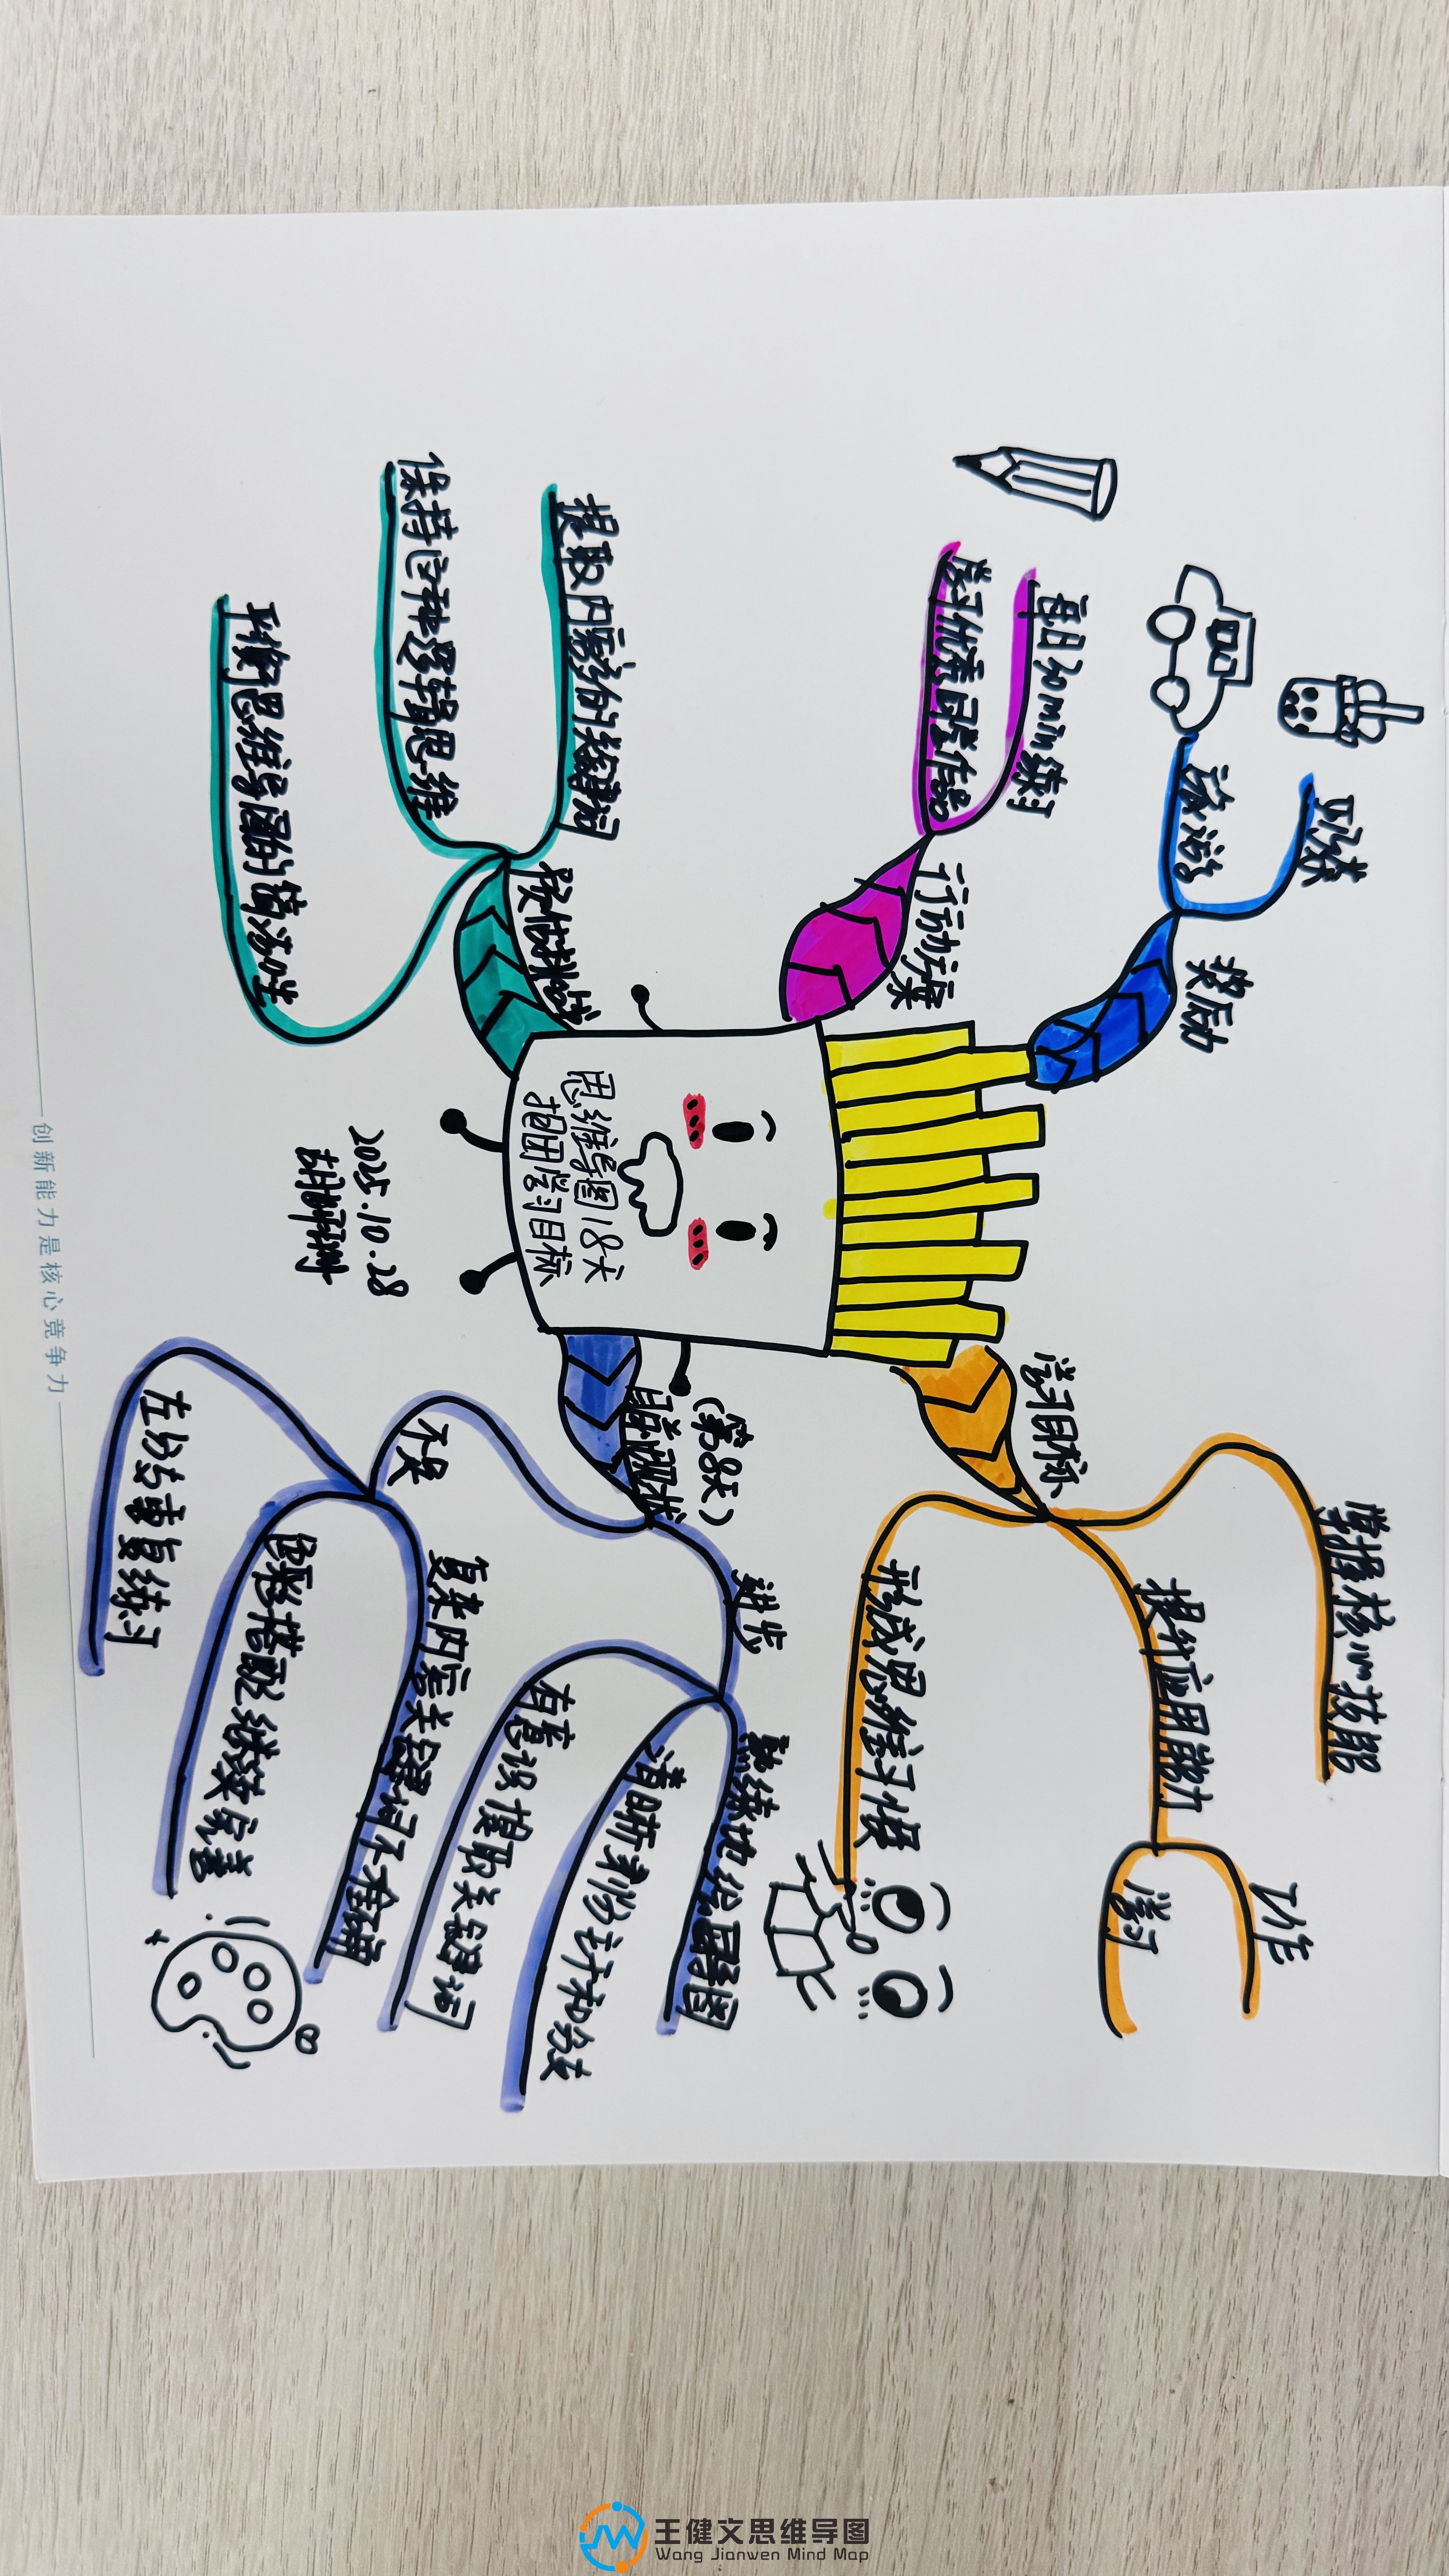 思维导图18天
抱团学习目标
学习目标
掌握核心技能
提升应用能力
工作
学习
形成思维习惯
(第8天)
自验现状
进步
熟练地绘画导图
清晰事物主干和分支
有意识提取关键词
不足
复杂内容关键词不准确
色彩搭配继续完善
左分支书写练习
预估挑战
提取内容分的关键词
保持这种逻辑思维
平衡思维导图的简洁性
行动方案
每日30min练习
学习优秀同学作品
奖励
旅游
奶茶
2025.10.28
创新能力是核心竞争力
王健文思维导图
Wang Jianwen Mind Map